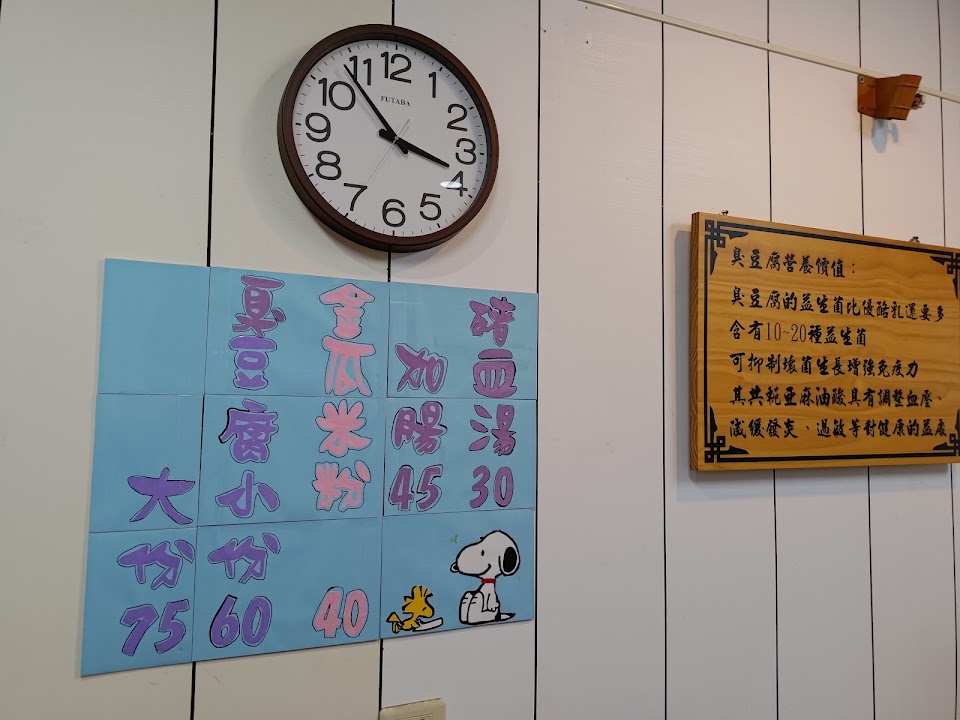 12
1
2
3
4
5
6
7
8
9
10
11
FUTABA
豬血湯30
加腸45
金瓜米粉40
臭豆腐小份60
大份75
臭豆腐營養價值：
臭豆腐的益生菌比優酪乳還要多
含有10~20種益生菌
可抑制壞菌生長增強免疫力
其共軛亚麻油酸具有調整血壓、
減緩發炎、過敏等對健康的益處